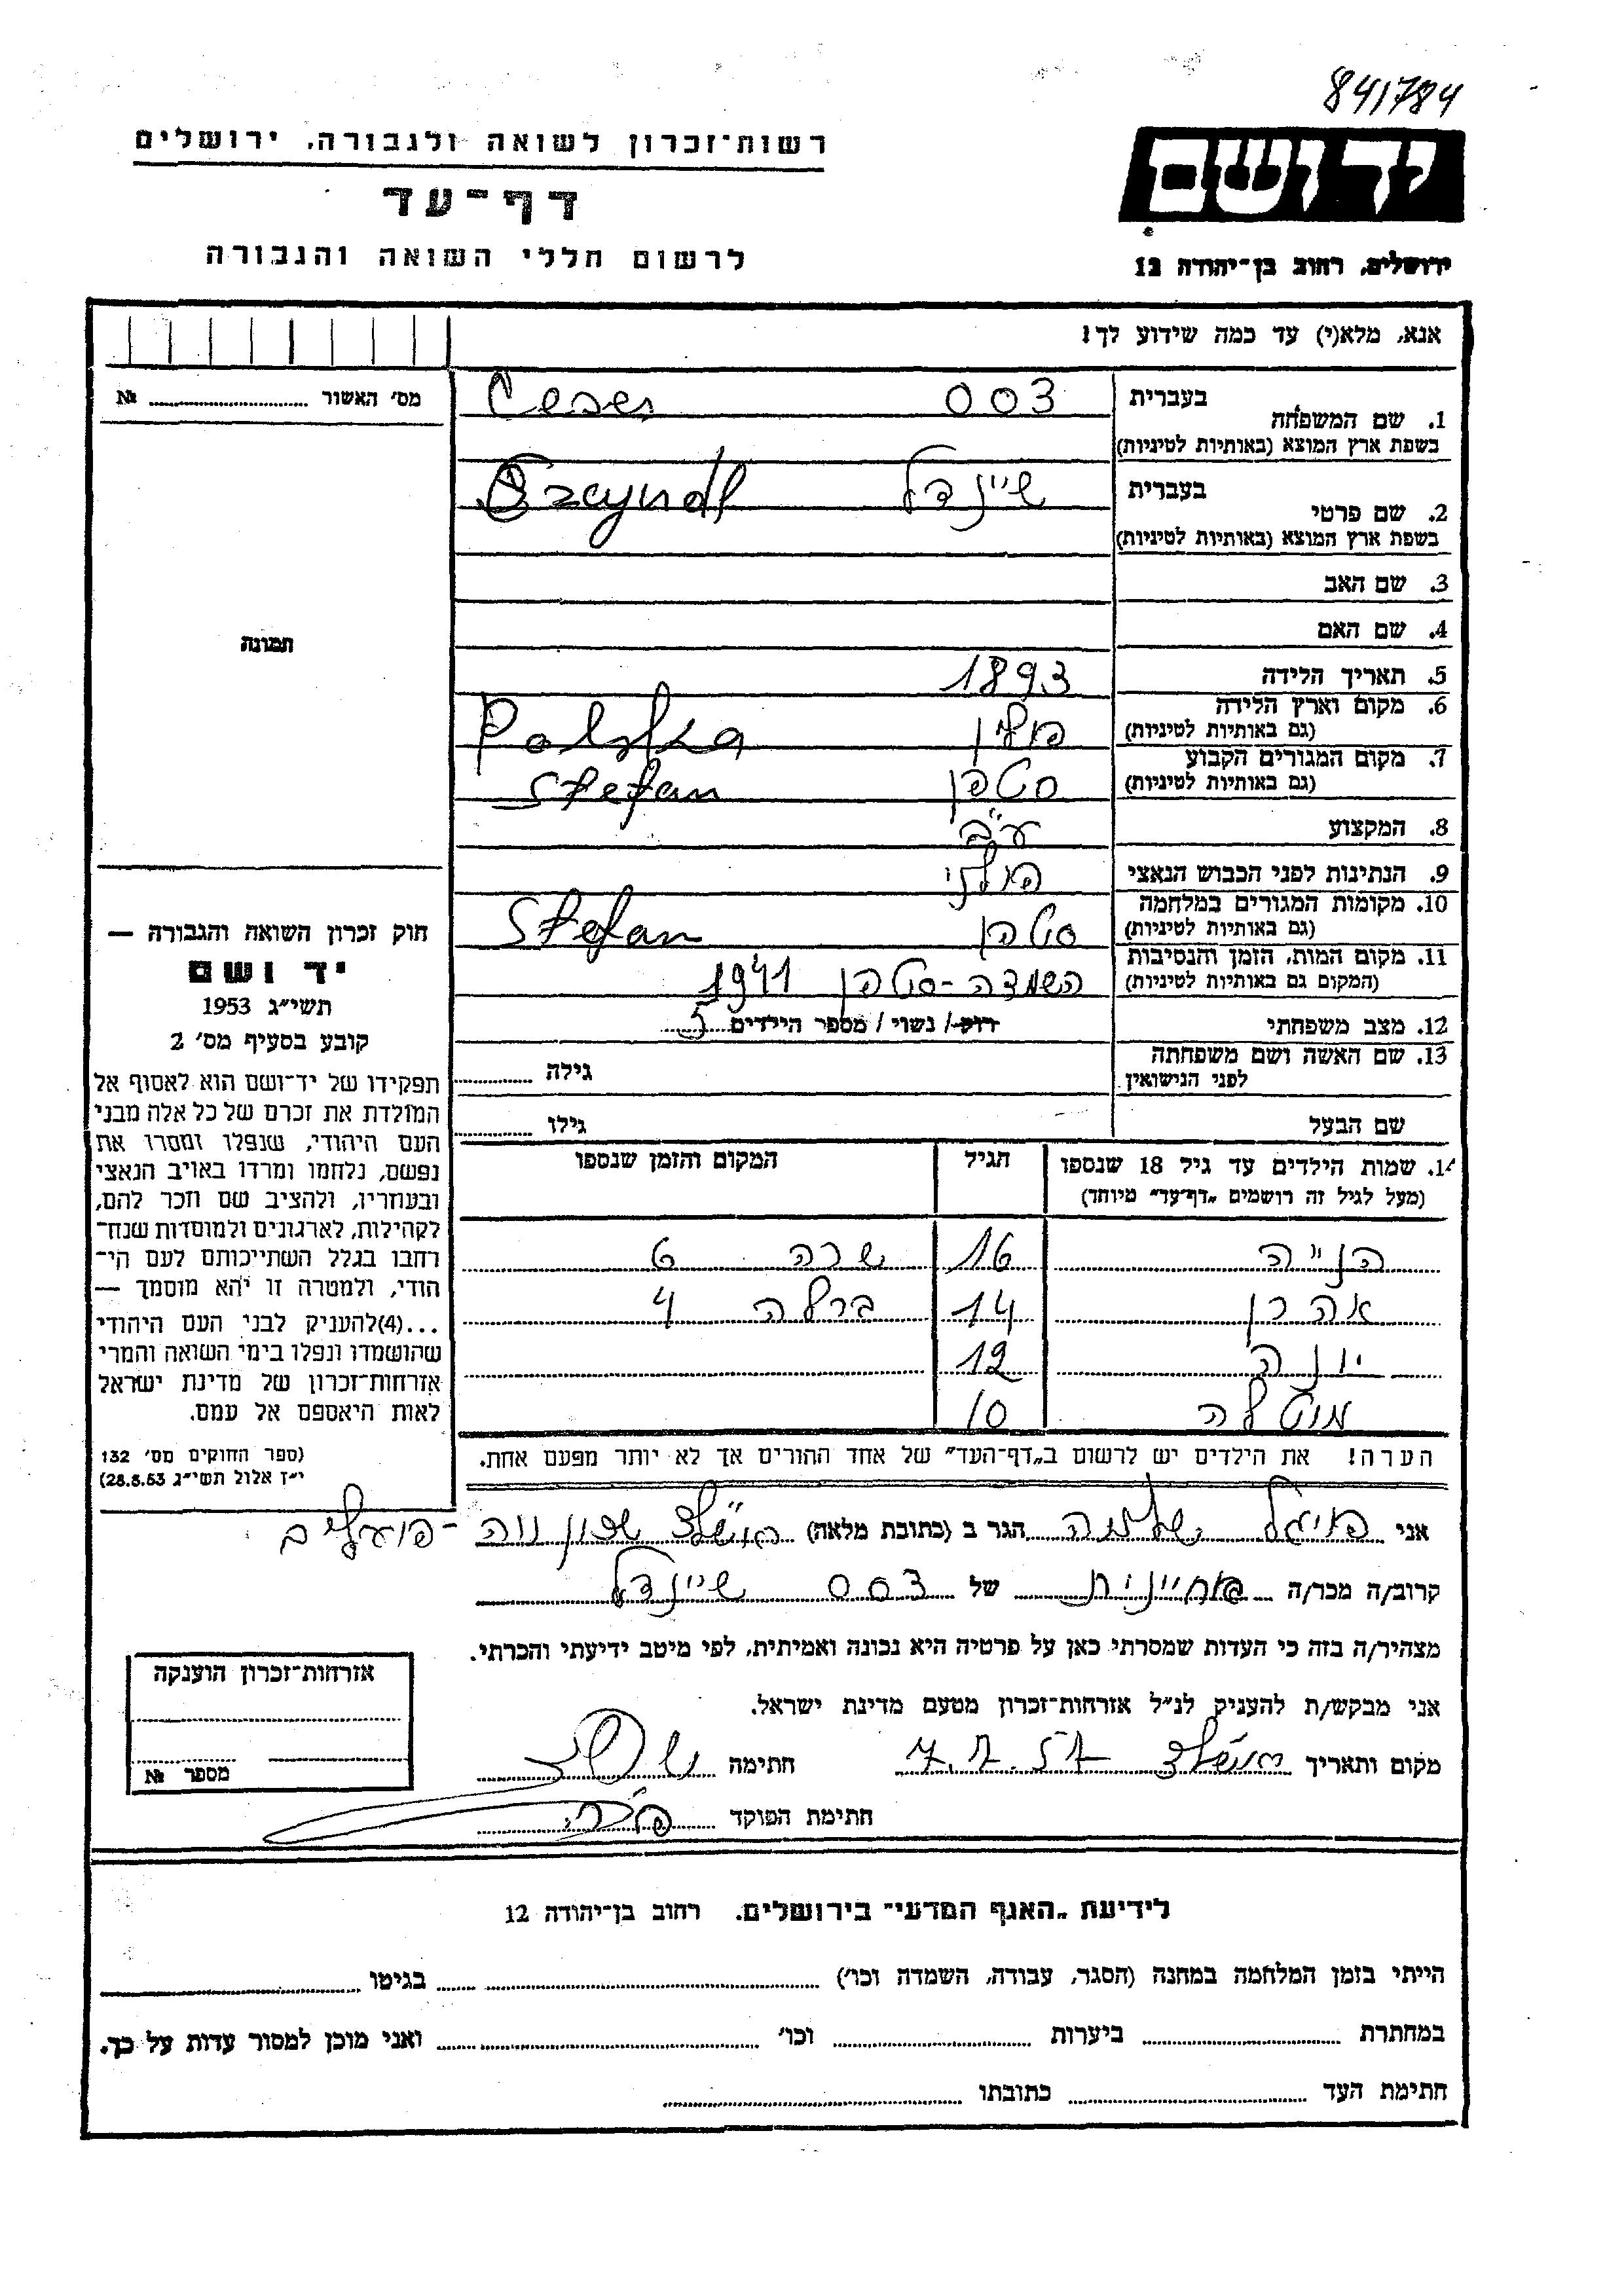 841784
יד ושם
ירושלים, רחוב בן־יהודה 12
רשות־זכרון לשואה ולגבורה, ירושלים
דף־עד
לרשום חללי השואה והגבורה
אנא, מלא(י) עד כמה שידוע לך!
מס׳ האשור № 
1. שם המשפחה בעברית צסס
בשפת ארץ המוצא (באותיות לטיניות)
2. שם פרטי בעברית שיינדל
בשפת ארץ המוצא (באותיות לטיניות)
3. שם האב
4. שם האם
5. תאריך הלידה 1893
6. מקום וארץ הלידה פולין Polska
(גם באותיות לטיניות)
7. מקום המגורים הקבוע סטפן Stefan
(גם באותיות לטיניות)
8. המקצוע עב״ב
9. הנתינות לפני הכבוש הנאצי פולני
10. מקומות המגורים במלחמה סטפן Stefan
(גם באותיות לטיניות)
11. מקום המות, הזמן והנסיבות השמדה-סטפן 1941
(המקום גם באותיות לטיניות)
12. מצב משפחתי רוק/ נשוי/ מספר הילדים 5
13. שם האשה ושם משפחתה גילה
לפני הנישואין
שם הבעל גילו
14. שמות הילדים עד גיל 18 שנספו הגיל המקום והזמן שנספו
(מעל לגיל זה רושמים „דף־עד״ מיוחד)
16 שרה 6
אהרן 14 ברלה 4
יונה 12
מוטלה 10
הערה! את הילדים יש לרשום ב„דף־העד״ של אחד ההורים אך לא יותר מפעם אחת.
תמונה
חוק זכרון השואה והגבורה —
יד ושם
תשי״ג 1953
קובע בסעיף מס׳ 2
תפקידו של יד־ושם הוא לאסוף אל
המולדת את זכרם של כל אלה מבני
העם היהודי, שנפלו ומסרו את
נפשם, נלחמו ומרדו באויב הנאצי
ובעוזריו, ולהציב שם וזכר להם,
לקהילות, לארגונים ולמוסדות שנח־
רחבו בגלל השתייכותם לעם הי־
הודי, ולמטרה זו יהא מוסמך —
...(4)להעניק לבני העם היהודי
שהושמדו ונפלו בימי השואה והמרי
אזרחות־זכרון של מדינת ישראל
לאות היאספם אל עמם.
(ספר החוקים מס׳ 132
י״ז אלול תשי״ג 28.8.53)
אני פויגל שלמה הגר ב (כתובת מלאה) שכון נווה-פועלים
קרוב/ה מכר/ה של צסס שיינדל
מצהיר/ה בזה כי העדות שמסרתי כאן על פרטיה היא נכונה ואמיתית, לפי מיטב ידיעתי והכרתי.
אני מבקש/ת להעניק לנ״ל אזרחות־זכרון מטעם מדינת ישראל.
מקום ותאריך חתימה
חתימת הפוקד
אזרחות־זכרון הוענקה
מספר №
לידיעת „האגף המדעי״ בירושלים. רחוב בן־יהודה 12
הייתי בזמן המלחמה במחנה (הסגר, עבודה, השמדה וכו׳) בגיטו
במחתרת ביערות וכו׳ ואני מוכן למסור עדות על כך.
חתימת העד כתובתו